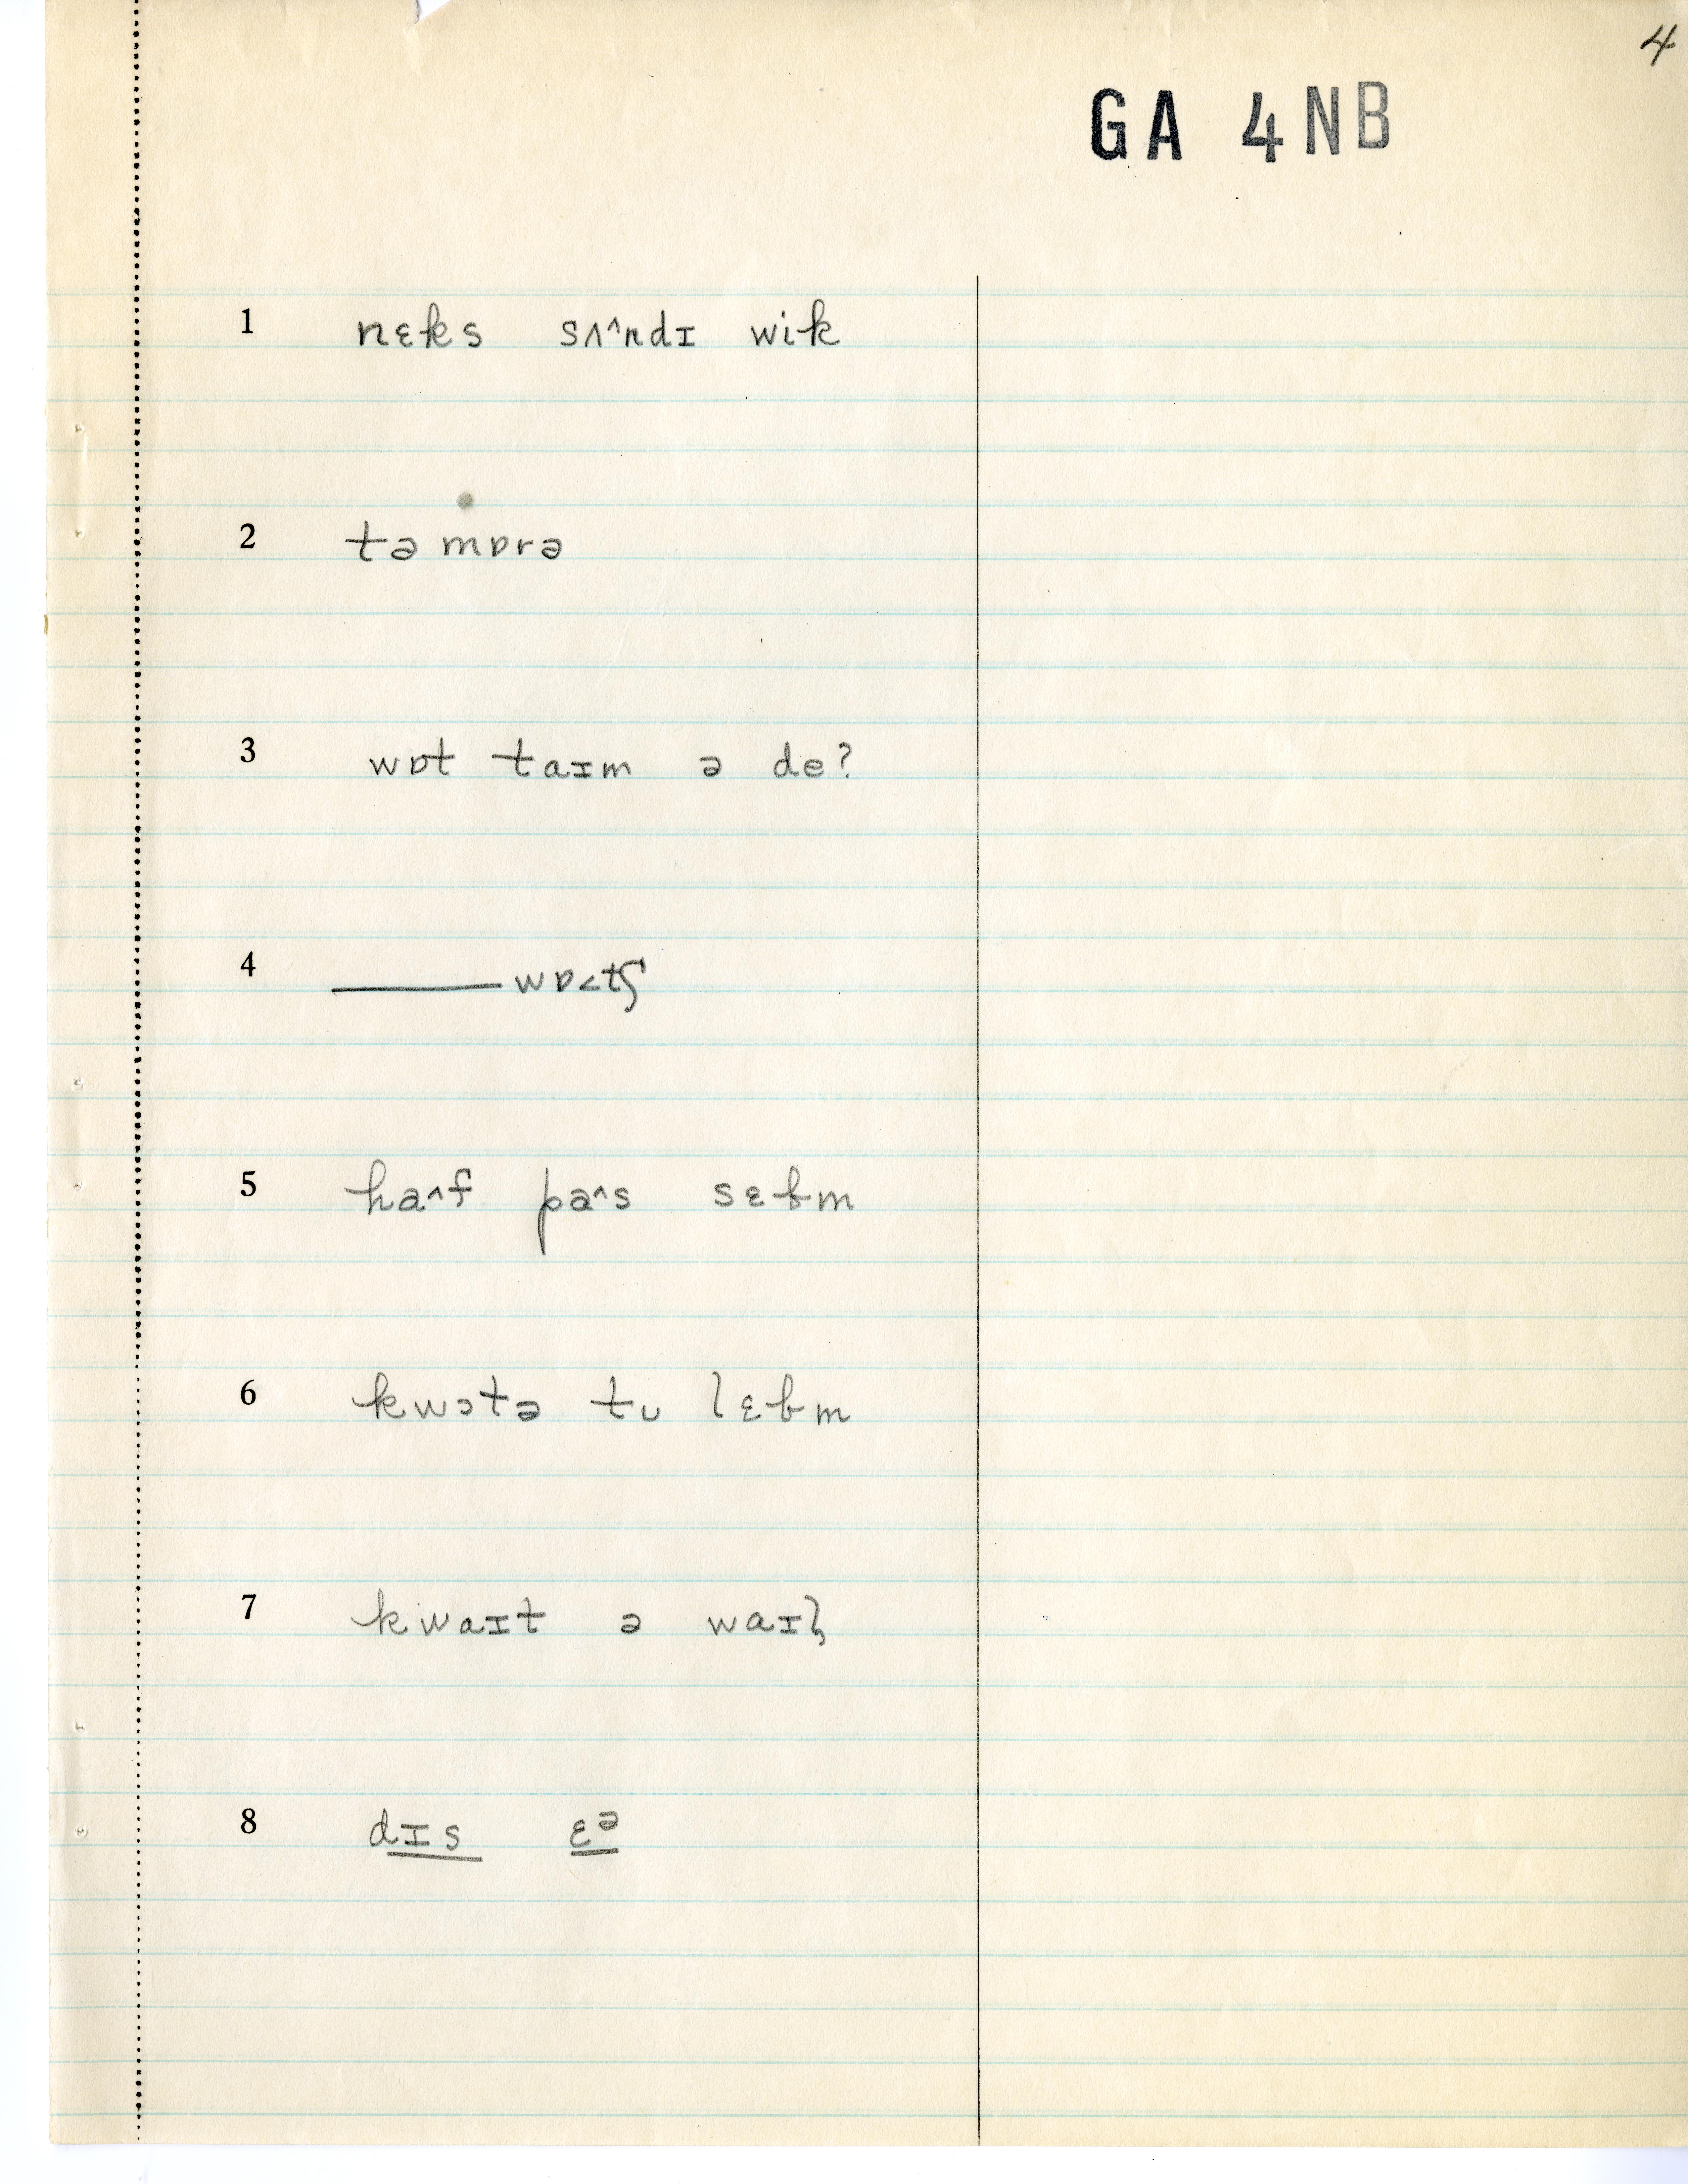 4
GA 4NB
1 nɛks sʌ^ndɪ wik
2 təmɒrə
3 wɒt taɪm ə de?
4 ———wɒ<tʃ
5 ha^f pa^s sɛbm
6 kwɔtə tʊ lɛbm
7 kwaɪt ə waɪl̥
8 dɪs ɛᵊ